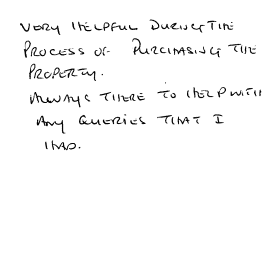 VERY HELPFUL DURING THE
PROCESS OF PURCHASING THE
PROPERTY.
ALWAYS THERE TO HELP WITH
ANY QUERIES THAT I
HAD.